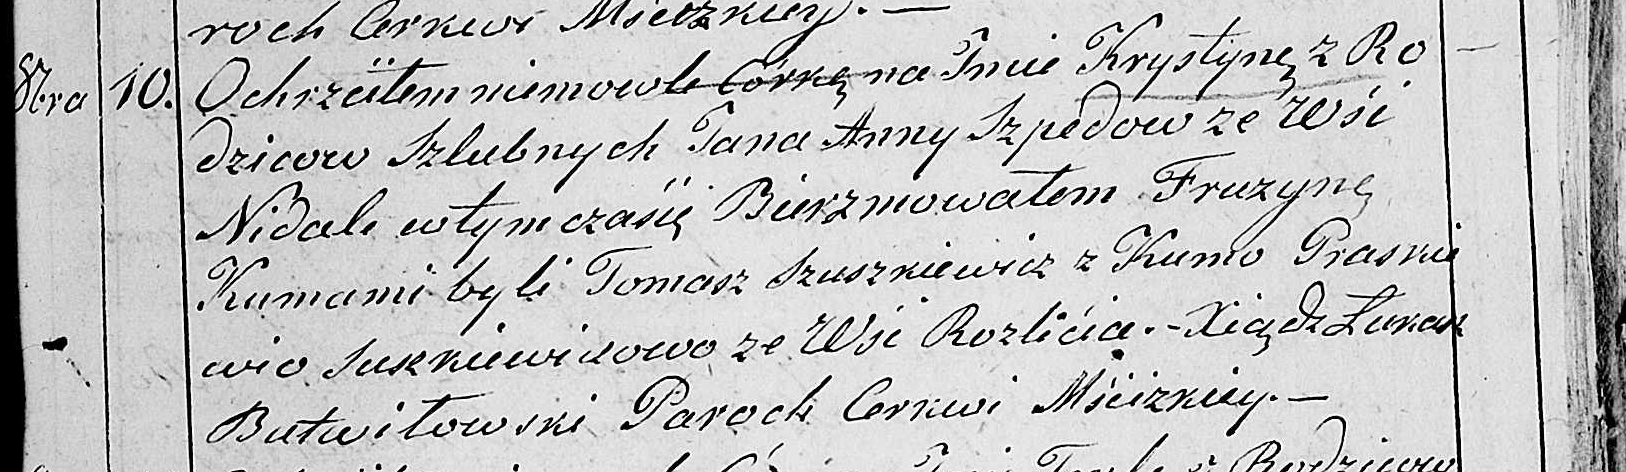 roch Cerkwi Mścizkiey. —
8bra 10. Ochrzciłem niemowle Córkę na Imie Krystynę z Ro
dzicow Szlubnych Jana Anny Szpedow ze Wśi
Nidale w tym czasię Bierzmowałem Fruzynę
Kumami byli Tomasz Szuszkiewicz z Kumo Praskie
wio Suszkiewiczowo ze Wśi Rozlićia. - Xiądz Łukasz
Butwiłowski Paroch Cerkwi Mścizkiey. —